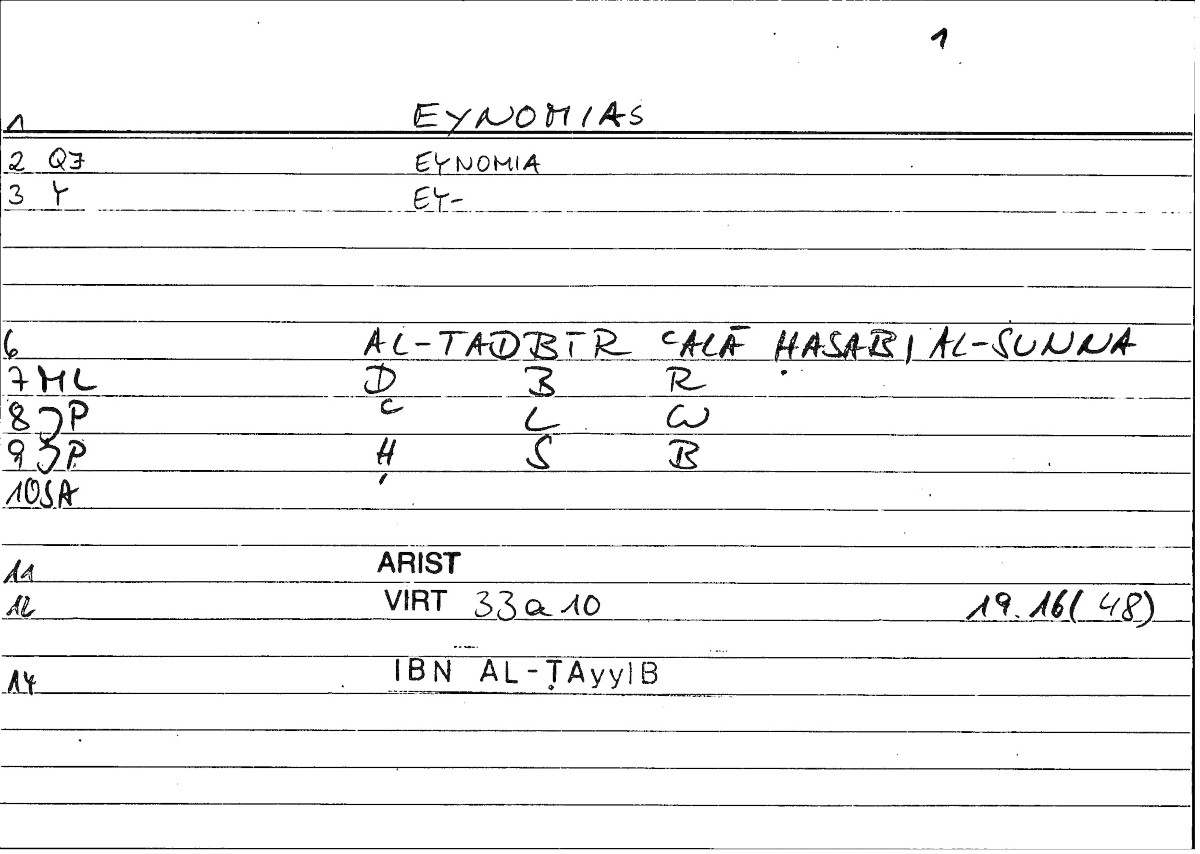 1
1 EYNOMIAS
2 QZ EYNOMIA
3 Y EY-
6 AL-TADBĪR ʿALĀ ḤASABI AL-SUNNA
7 ML D B R
8 P ʿ L W
9 P Ḥ S B
10 SA
11 ARIST
12 VIRT 33a10 19.16(48)
14 IBN AL-ṬAyyIB